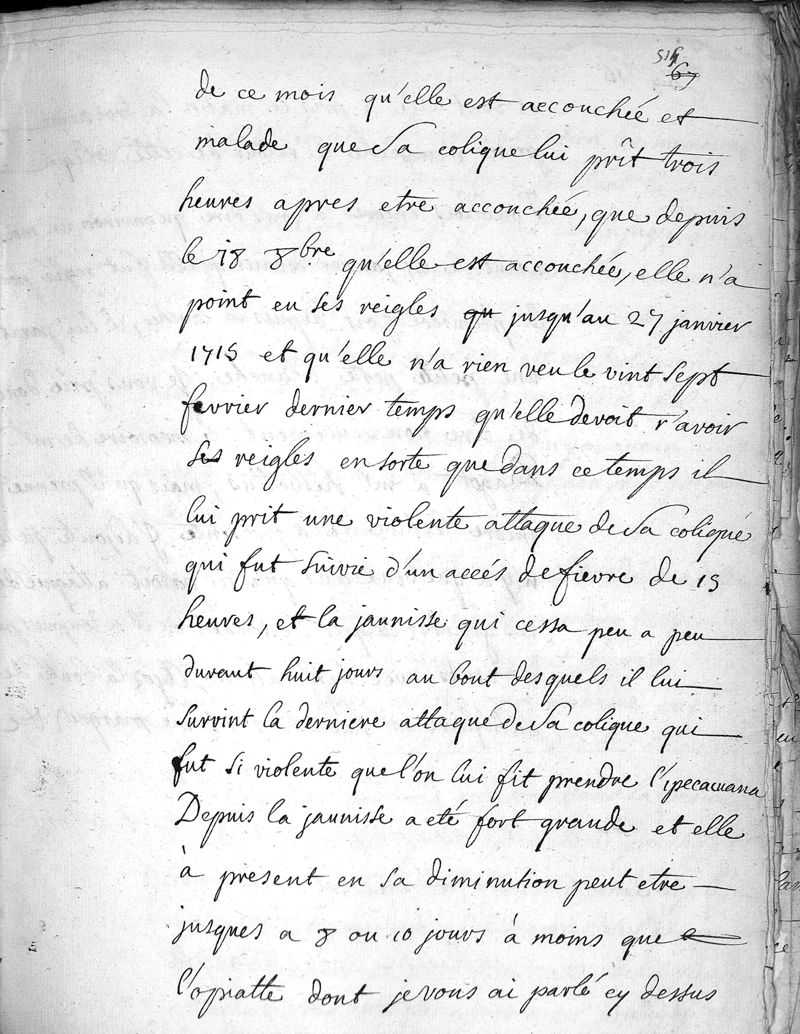 514
67
de ce mois qu'elle est accouchée et
malade que sa colique lui prît trois
heures apres etre accouchée, que depuis
le 18 8bre qu'elle est accouchée, elle n'a
point eu ses reigles qu jusqu'au 27 janvier
1715 et qu'elle n'a rien veu le vint sept
fevrier dernier temps qu'elle devoit r'avoir
ses reigles ensorte que dans ce temps il
lui prit une violente attaque de sa colique
qui fut suivie d'un accés de fievre de 15
heures, et la jaunisse qui cessa peu a peu
durant huit jours au bout desquels il lui
survint la derniere attaque de sa colique qui
fut si violente que l'on lui fit prendre l'ipecacuana
Depuis la jaunisse a eté fort grande et elle
à present en sa diminution peut etre
jusques a 8 ou 10 jours à moins que
l'opiatte dont je vous ai parlé cy dessus